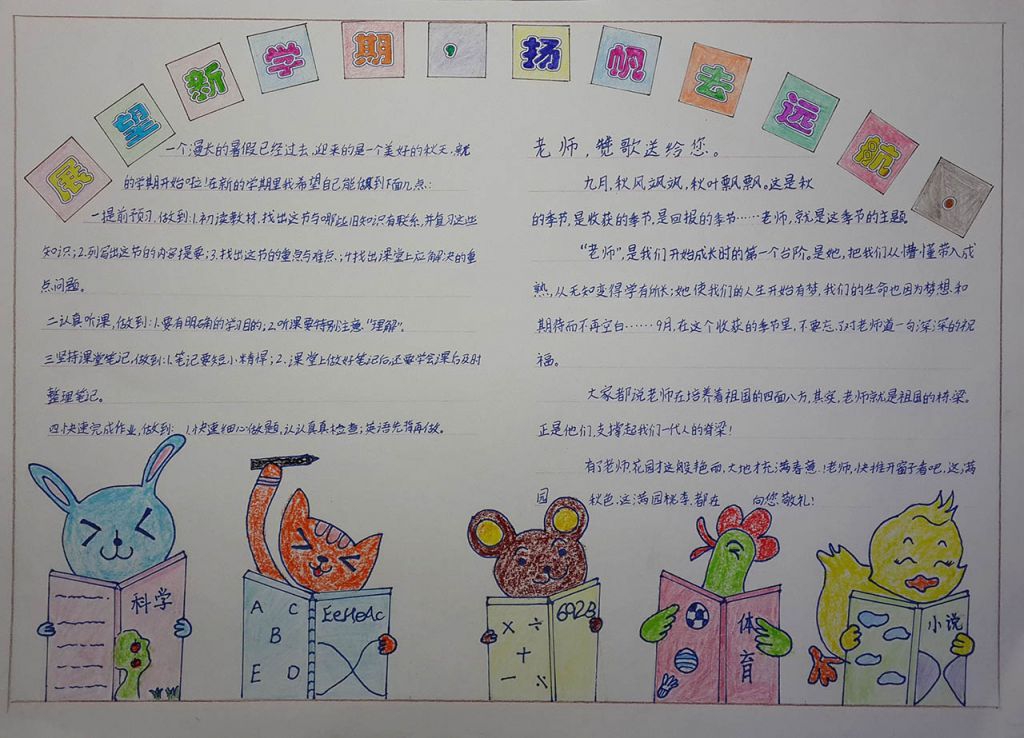 展望新学期,扬帆去远航.
一个漫长的暑假已经过去,迎来的是一个美好的秋天,新
的学期开始啦!在新的学期里我希望自己能做到下面几点:
一提前预习,做到:1.初读教材,找出这节与哪些旧知识有联系,并复习这些
知识;2.列写出这节的内容提要;3.找出这节的重点与难点;4找出课堂上应解决的重
点问题。
二认真听课,做到:1.要有明确的学习目的;2.听课要特别注意"理解"。
三坚持课堂笔记,做到:1.笔记要短小精悍;2.课堂上做好笔记后,还要学会课后及时
整理笔记。
四快速完成作业,做到:1.快速细心做题,认认真真检查;英语先背再做。
老师,赞歌送给您。
九月,秋风飒飒,秋叶飘飘。这是秋
的季节,是收获的季节,是回报的季节……老师,就是这季节的主题。
"老师",是我们开始成长时的第一个台阶。是她,把我们从懵懂带入成
熟,从无知变得学有所长;她使我们的人生开始有梦,我们的生命也因为梦想和
期待而不再空白……9月,在这个收获的季节里,不要忘了对老师道一句深深的祝
福。
大家都说老师在培养着祖国的四面八方,其实,老师就是祖国的桥梁。
正是他们,支撑起我们一代人的脊梁!
有了老师,花园才这般艳丽,大地才充满春意!老师,快推开窗子看吧,这满
园秋色,这满园桃李,都在向您敬礼!
科学
A C
B
E D
EeHeAc
× ÷
+
- ×
体
育
小说